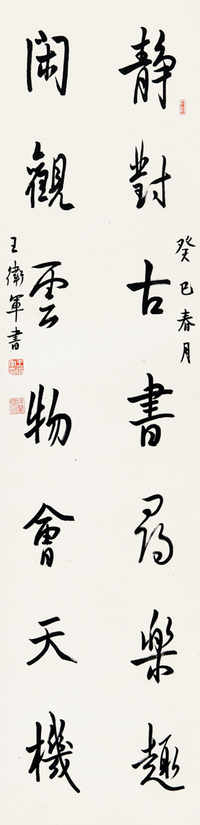 静對古書尋樂趣
癸巳春月
閑觀雲物會天機
王衛軍書